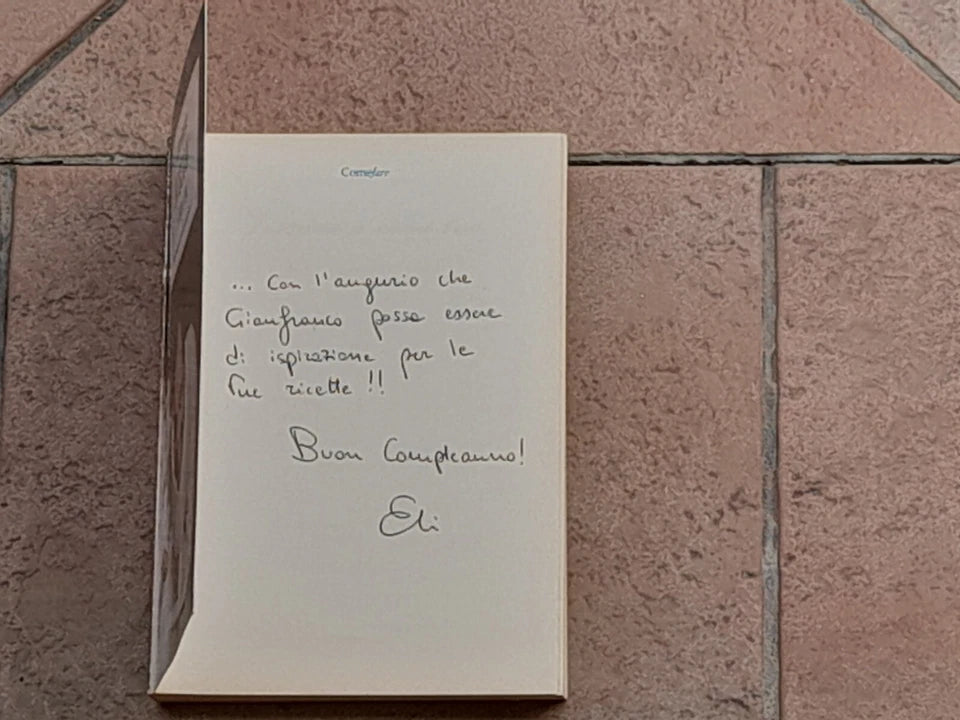 Comefare
... Con l'augurio che
Gianfranco possa essere
di ispirazione per le
tue ricette !!
Buon Compleanno!
Eli